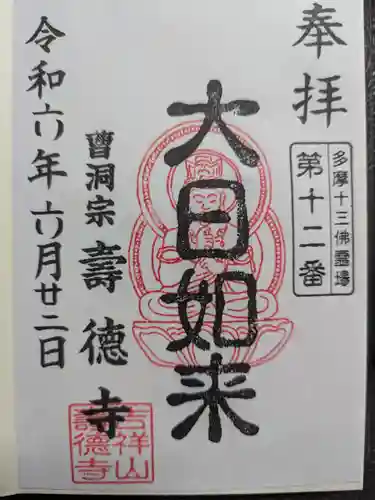 奉拝
多摩十三佛霊場
第十二番
大日如来
曹洞宗 壽德寺
令和六年六月廿二日
吉祥山
壽德寺